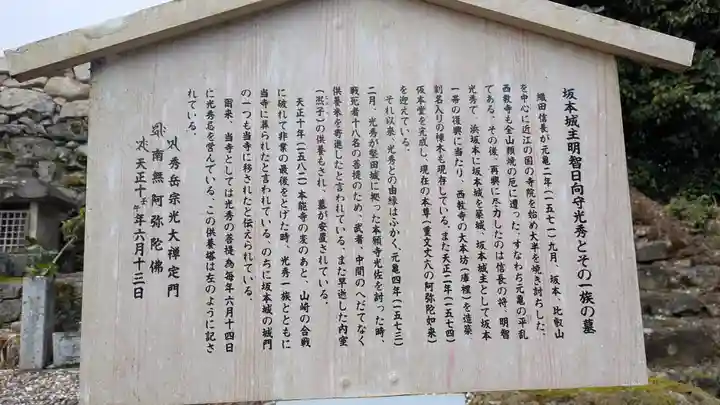 坂本城主明智日向守光秀とその一族の墓
織田信長が元亀二年(一五七一)九月、坂本、比叡山
を中心に近江の国の寺院を始め大半を焼き討ちした。
西教寺も全山類焼の厄に遭った。すなわち元亀の平乱
である。その後、再興に尽力したのは信長の将、明智
光秀で、浜坂本に坂本城を築城、坂本城主として坂本
一帯の復興に当たり、西教寺の大本坊(庫裡)を造築
刻名入りの棟木も現存している。また天正二年(一五七四)
仮本堂を完成し、現在の本尊(重文丈六の阿弥陀如来)
を迎えている。
それ以来、光秀との由縁はふかく、元亀四年(一五七三)
二月、光秀が堅田城に拠った本願寺光佐を討った時、
戦死者十八名の菩提のため、武者、中間のへだてなく、
供養米を寄進したと言われている。また早逝した内室
(煕子)の供養もされ、墓が安置されている。
天正十年(一五八二)本能寺の変のあと、山崎の合戦
に破れて非業の最後をとげた時、光秀一族とともに
当寺に葬られたと言われている。のちに坂本城の城門
の一つも当寺に移されたと伝えられている。
爾来、当寺としては光秀の菩提為毎年六月十四日
に光秀忌を営んでいる。この供養塔は左のように記さ
れている。
秀岳宗光大禅定門
南無阿弥陀佛
天正十壬午年六月十三日